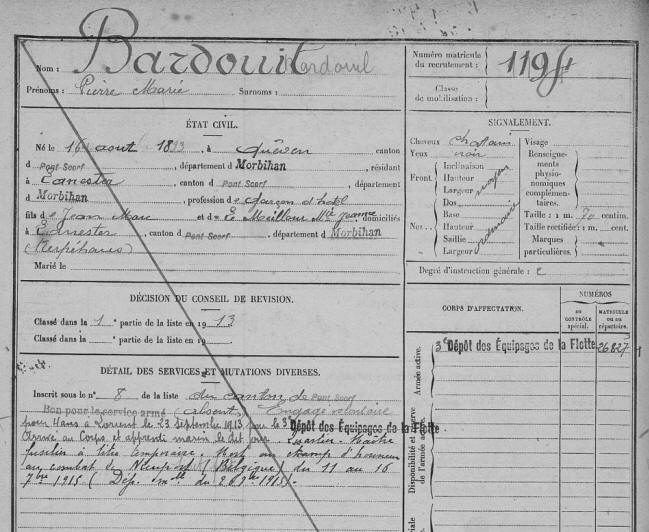 Nom : Bardouil
Prénoms : Pierre Marie Surnoms :
ÉTAT CIVIL.
Né le 16 aout 1893, à Quéven canton
d Pont Scorf, département d Morbihan, résidant
à Lanester, canton d Pont Scorf, département
d Morbihan, profession de garçon d'hôtel
fils de Jean Marc et de Le Meilleur Mie Jeanne, domiciliés
à Lanester, canton d Pont Scorf, département d Morbihan
Marié le
DÉCISION DU CONSEIL DE REVISION.
Classé dans la 1 e partie de la liste en 1913
Classé dans la e partie de la liste en 19
DÉTAIL DES SERVICES ET MUTATIONS DIVERSES.
Inscrit sous le n° 8 de la liste du canton de Pont Scorf
Bon pour le service armé (absent) Engagé volontaire
pour 4 ans à Lorient le 23 septembre 1913 pour le 3e Dépôt des Équipages de la Flotte
Arrivé au Corps et apprenti marin le dit jour. Quartier-Maître
fusilier à titre temporaire. Mort au champ d'honneur
au combat de Nieuport (Belgique) du 11 au 16
7bre 1915 (Dép. mlle du 1915).
Numéro matricule
du recrutement : 1198
Classe
de mobilisation :
SIGNALEMENT.
Cheveux chatains
Yeux noir
Front. Inclinaison
Hauteur moyen
Largeur
Nez Dos
Base
Hauteur
Saillie
Largeur
Visage
Renseigne-
ments
physio-
nomiques
complémen-
taires.
Taille : 1 m. 70 centim.
Taille rectifiée : 1 m. cent.
Marques
particulières.
Degré d'instruction générale : 2
CORPS D'AFFECTATION.
NUMÉROS
AU CONTRÔLE spécial.
MATRICULE ou au répertoire.
Armée active.
3e Dépôt des Équipages de la Flotte 26827
Disponibilité et réserve
de l'armée active.